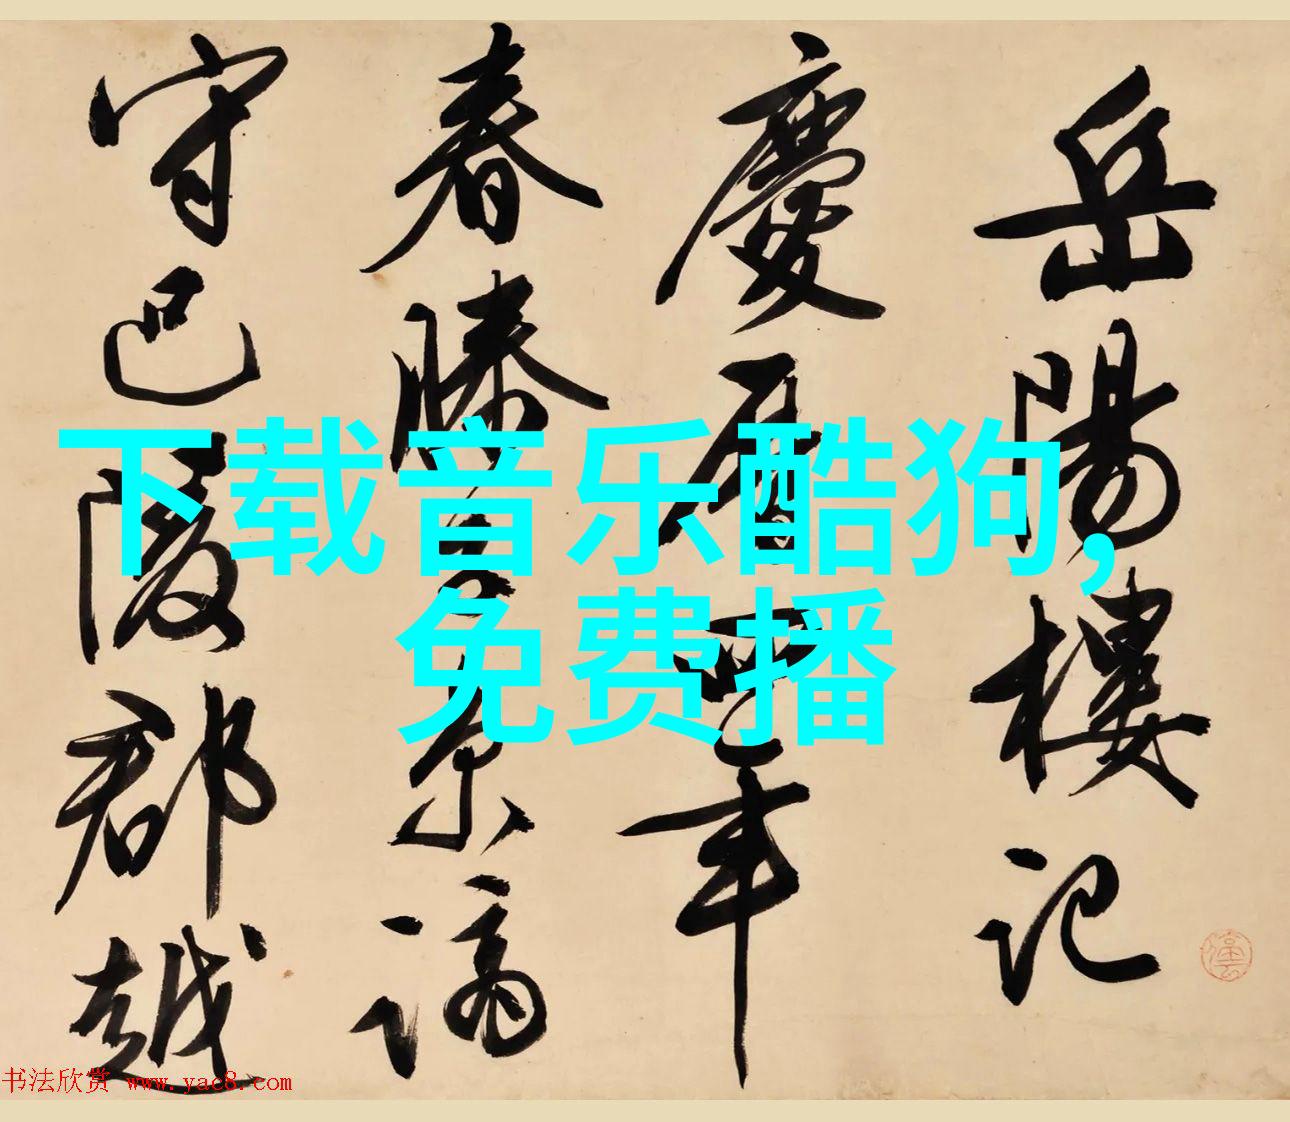 岳陽樓記
慶曆四年
春滕子京謫
守巴陵郡越
下载音乐酷狗，
免费播
书法欣赏 www.yac8.com